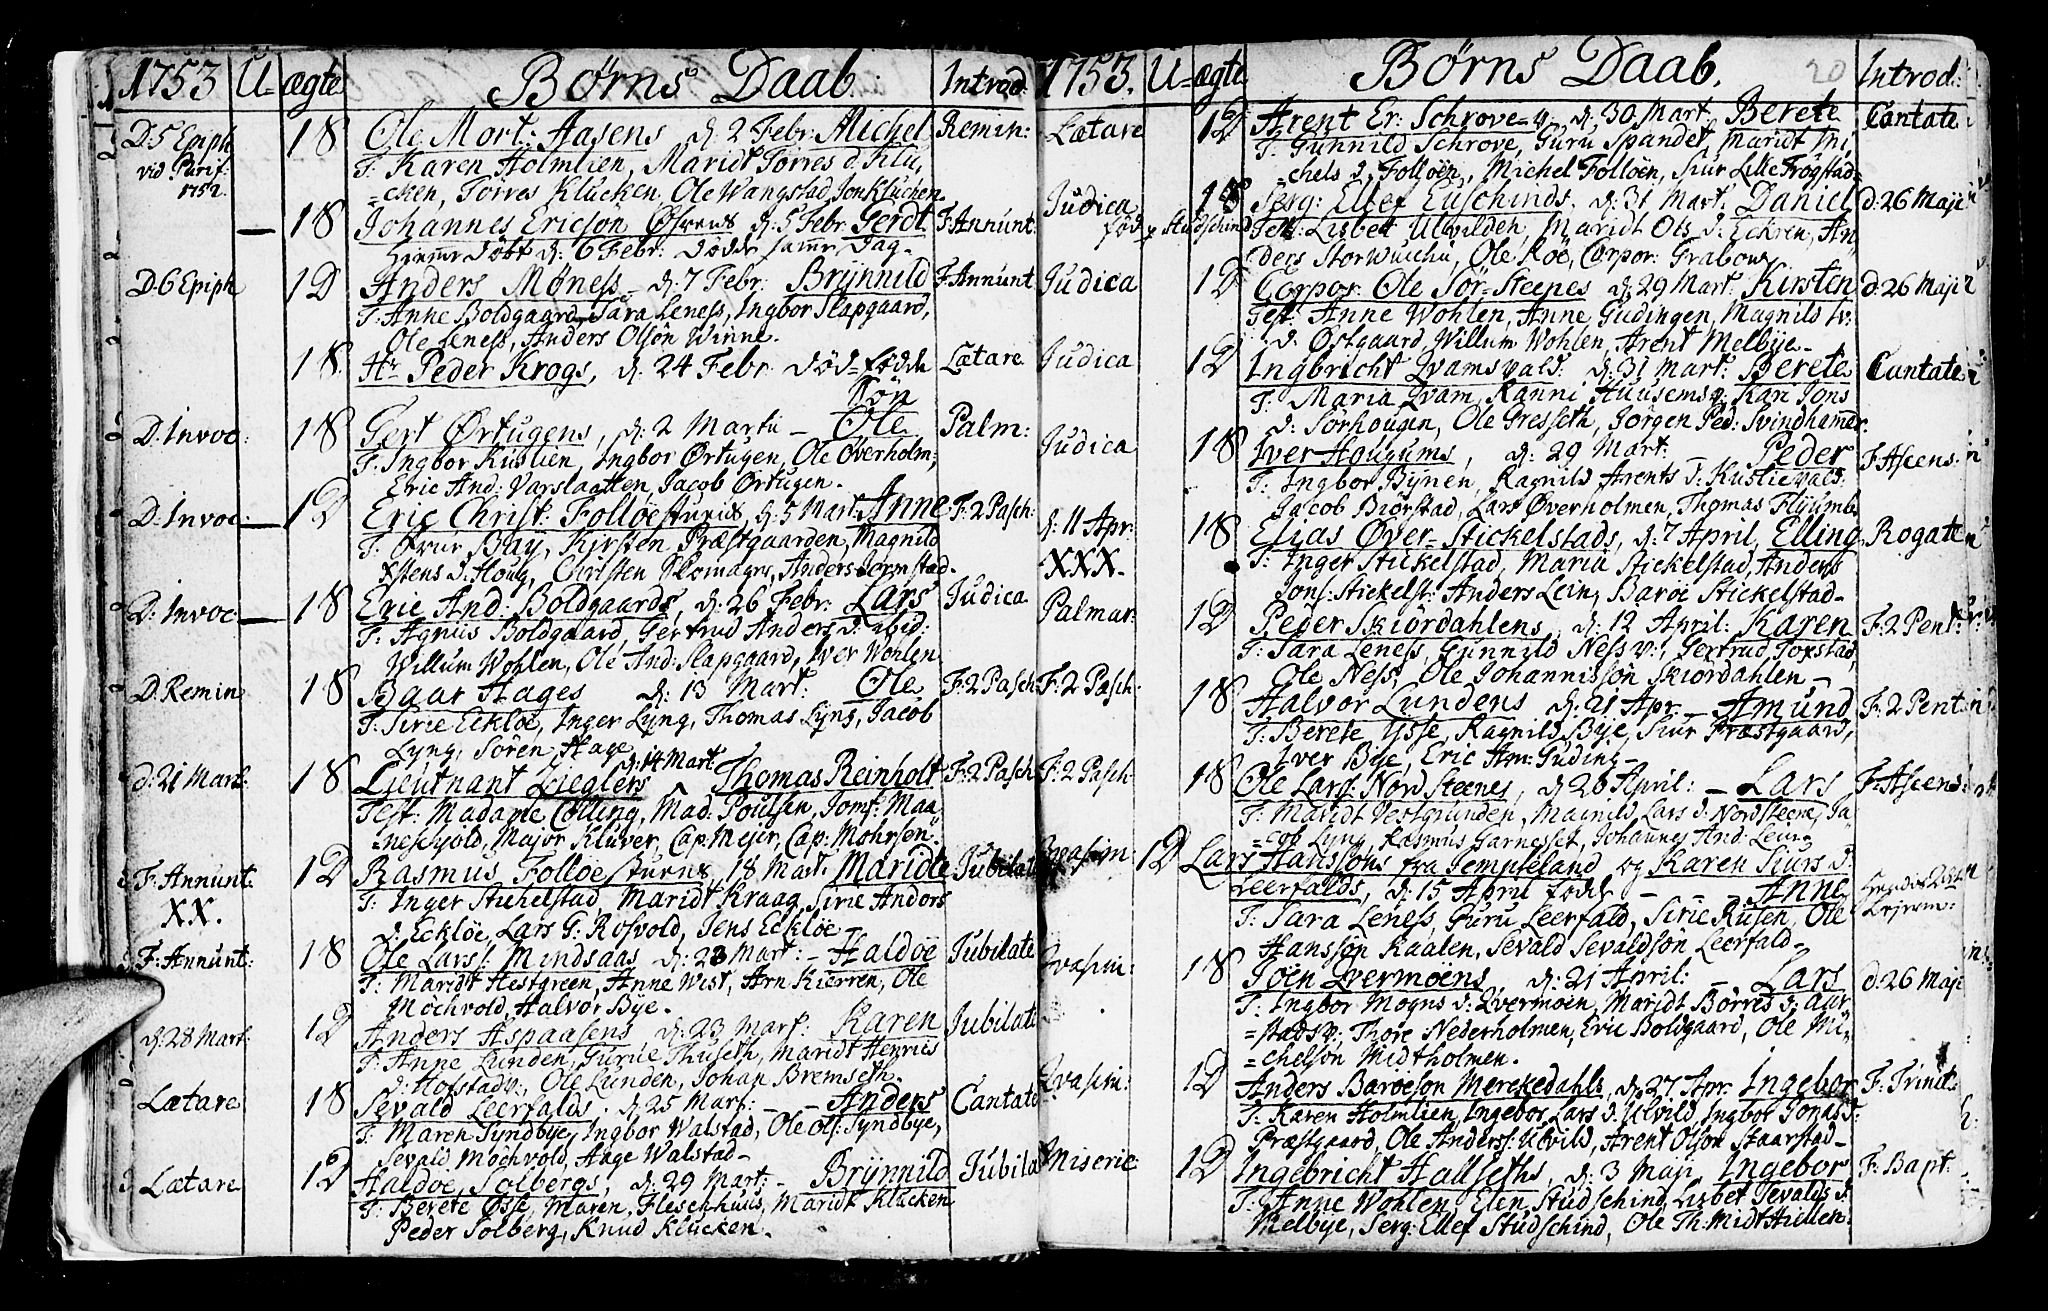 1753 U- ægte Børns Daab. Introd.
D: 5 Epiph 1 S Ole Mort: Aasens d: 2 Febr: Michel Remin:
vid Purif: T: Karen Holmlien, Maridt Torres d. Klu,
1752. =cken, Torres Klucken. Ole Wangstad, Jon Kluchen.
— 1 S Johannes Ericson d: 5 Febr. Gerdt F. Annunt.
Hiemme døbt d: 6 Febr: døde samme Dag-
D. 6 Epiph 1 D Anders Møness d: 7 Febr: Brÿnnild F. Annunt.
T: Anne Boldgaard, Sara Leness, Ingbor Slapgaard,
Ole Leness, Anders Olsøn Winne.
1 S. Hr Peder Krogs, d: 24 Febr. død-fødde Lætare
Søn
D. Invoc: 1 S Gert Ørtugens, d: 2 Martii – Ole Palm:
T: Ingbor Kuslien, Ingbor Ørtugen, Ole Øverholm,
Eric And: Varslaatten, Jacob Ørtugen.
D: Invoc: — 1 D Eric Christ: Folløe d: 5 Mart: Anne F: 2 Pasch:
T: Baÿ, Kirsten Præstgaarden, Magnild
d: Houg, Christen Skomagrs, Anders Jermstad.
D: Invoc: — 1 S Eric And: Boldgaards, d: 26 Febr: Lars Judica
T: Agnus Boldgaard, Gertrud Anders d: ibid:
Willum Wohlen, Ole And: Slapgaard, Iver Wohlen
D. Remin 1 S Baar Hages d: 13 Mart: Ole F: 2 Pasch
T: Sirie Eckløe, Inger Lÿng, Thomas Lÿng, Jacob
Lÿng, Søren Hage
d: 21 Mart: 1 S Lieutnant Zieglers d: 14 Mart Thomas Reinholt F: 2 Pasch
Test: Madame Colling, Mad: Poulsen, Jomf: Maa
=neschÿold, Major Klüver, Cap: Mejer, Cap: Mohrsen.
F: Annunt. 1 D Rasmus Folløe 18 Mart: Maridte Jubilate
XX. T: Inger Stichelstad, Maridt Kraag, Sirie Anders
d: Eckløe, Lars G: Rosvold, Jens Eckløe
F: Annunt: 1 S Ole Lars: Mindsaas d: 23 Mart: – Haldoe Jubilate
T: Maridt Hestgreen, Anne Wist, Arn Kierren, Ole
Mochvold, Halvor Bÿe.
d: 28 Mart: 1 D Anders Aspaasens d: 23 Mart: Karen Jubilate
T: Anne Lunden, Gurue Thuseth, Maridt Henrics
d: Hofstadv:, Ole Lunden, Johan Bremseth.
Lætare 1 S Sevald Leerfalds. d: 25 Mart: – – Anders Cantate
T: Maren Sÿndbÿe, Ingbor Walstad, Ole Ols: Sÿndbÿe,
Sevald Mochvold, Aage Walstad–
Lætare 1 D Haldoe Solbergs, d: 29 Mart: – Brÿnnild Jubila
T: Berete Øsse, Maren Fleskhuus, Maridt Klücken
Peder Solberg, Knud Klucken.
1753. U- ægte Børns Daab. 20 Introd:
Lætare 1 D Arent Er: Schrove- d: 30 Mart: Berete Cantate
T: Gunnild Schrove, Guru Spandet, Maridt Mi,
=chels d. Folløen, Michel Folløen, Siur Lille Frøgstad=
Judica 1 S Serg: Ellef d: 31 Mart. Daniel d: 26 Maji
Test: Lisbet Ulvilden, Maridt Ols d: Eckren, An
ders StorWuchu, Ole Roe, Corpor: Grabow
Judica 1 D Corpor. Ole Sør-Steenes d: 29 Mart: Kirsten d: 26 Maji
Test: Anne Wohlen, Anne Gudingen, Magnild Iv:
d: Østgaard, Willum Wohlen, Arent Melbÿe–
Judica 1 D Ingbricht Qvamsvald: d: 31 Mart: Berete Cantate
T: Maria Qvam, Ranni Huusemsv: Kari Jons
d: Sørhougen, Ole Gresseth, Jørgen Ped: Svindhamer.
Judica 1 S Iver Hougums, d: 29 Mart. Peder F: Ascens:
T: Ingbor Bÿnen, Ragnild Arents d: Kuslievald:
Jacob Biørstad, Lars Øverholmen, Thomas
d: 11 Apr: 1 S Elias Øver-Stickelstads, d: 7 April, Elling Rogate
XXX. T: Inger Stickelstad, Maria Stickelstad, Anders
Jons: Stickelst: Anders Lein, Baroe Stickelstad–
Palmar: 1 D Peder Skiørdahlens, d: 12 April: Karen F: 2 Pent:
T: Sara Leness, Gunnild Ness v:, Gertrud Toxstad,
Ole Ness, Ole Johannissøn Skiørdahlen –
F: 2 Pasch: 1 S Halvor Lundens d: 21 Apr – Amund F: 2 Pent
T: Berete Ysse, Ragnild Bÿe, Siur Præstgaard,
Iver Bÿe, Eric Am: Guding–
F: 2 Pasch: 1 S Ole Lars: Nord Steenes, d: 26 April: – Lars F: Ascens:
T: Maridt Vestgrunden, Magnild Lars d: Nordsteene, Ja
=cob Lÿng, Rasmus Garnesset, Johannes And: Lein.
Qvasim: 1 D Lars Hanssøns fra Jempteland og Karen Siurs d:
Leerfalds, d: 15 April fødde – – Anne
T: Sara Leness, Guru Leerfald, Sirie Risen, Ole
Hanssøn Kaalen, Sevald Sevaldsøn Leerfald–
Qvasim: 1 S Joen Qvermoens, d: 21 April: – Lars d: 26 Maji
T: Ingbor Mogns d: Qvermoen, Maridt Børres d: Aur
=stadsv: Thore Nederholmen, Eric Boldgaard, Ole Mi,
=chelsøn Midtholmen.
Qvasim: 1 D Anders Baroeson Merckedahls, d: 27 Apr. Ingebor F: Trinit:
T: Karen Holmlien, Ingebor Lars d: Ulvild, Ingbor Jonas d:
Præstgaard, Ole Anders: Ulvild, Arent Olson Staarstad–
Miseric 1 D Ingebricht Hallseths, d: 3 Maji, Ingebor F: Bapt.
T: Anne Wohlen, Elen Studschind, Lisbet Sevalds d:
Melbÿe, Serg: Ellef Studschind, Ole Th: MidtHiellen.